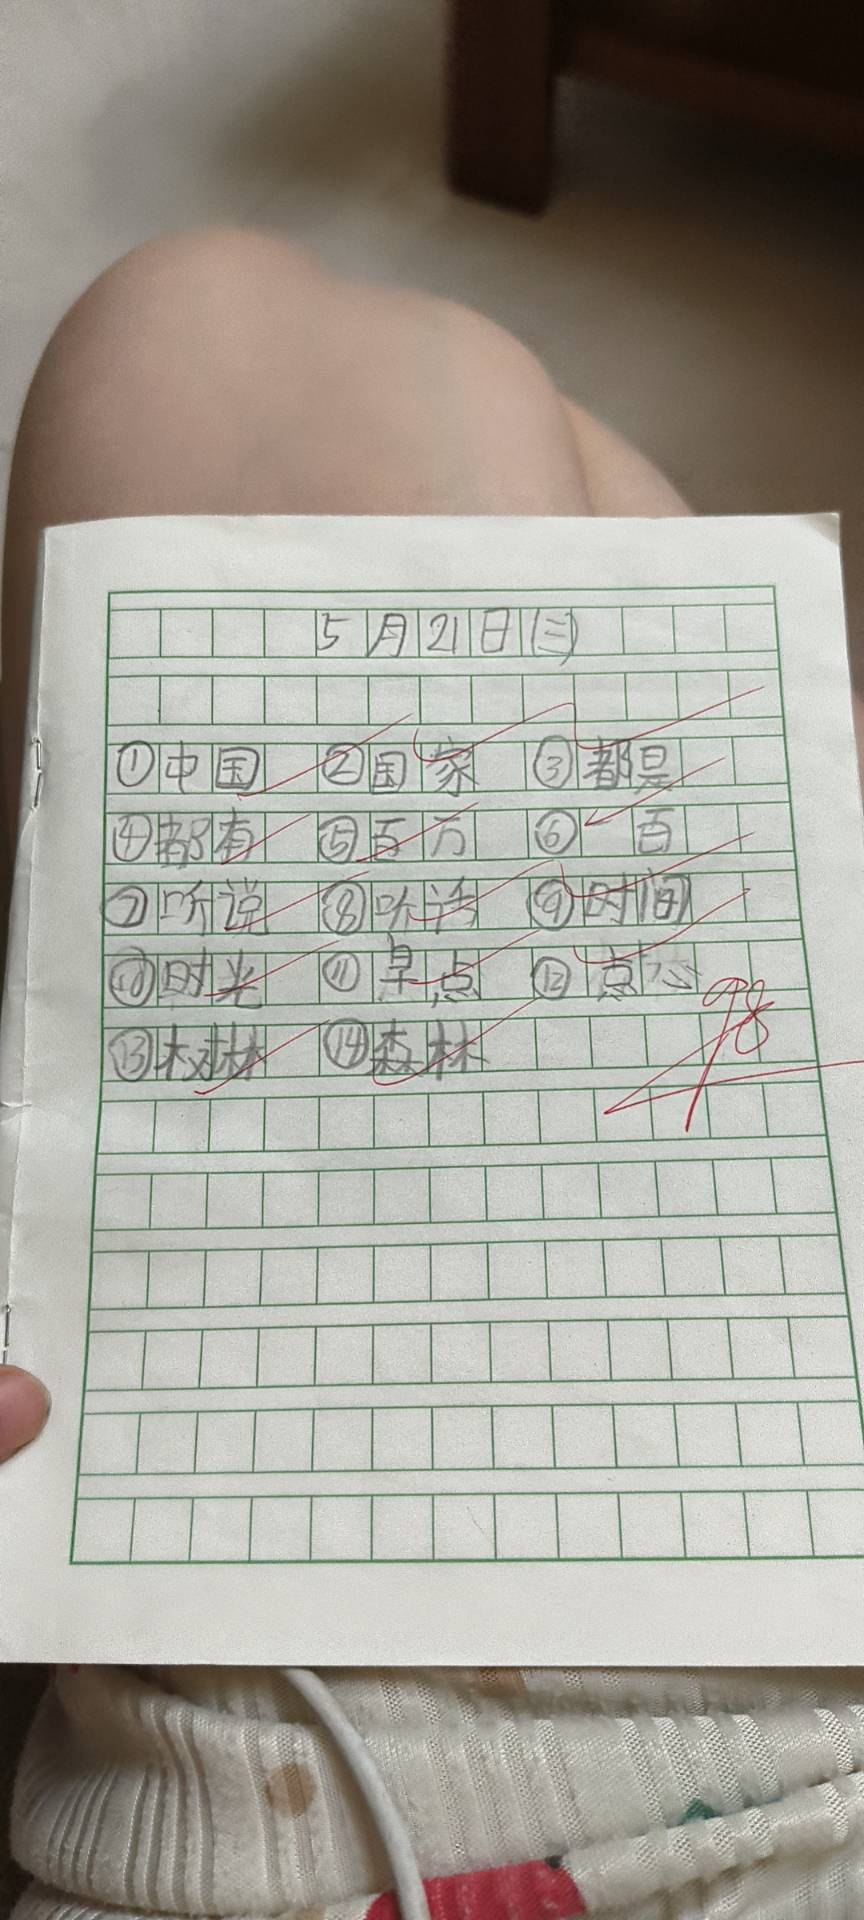 5月21日(三)
①中国 ②国家 ③都是
④都有 ⑤百万 ⑥一百
⑦听说 ⑧听话 ⑨时间
⑩时光 ⑪早点 ⑫点心
⑬树林 ⑭森林
98